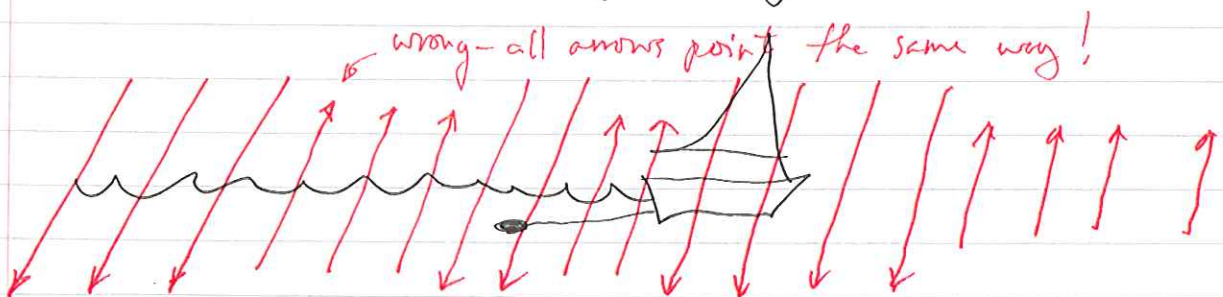 wrong - all arrows point the same way!